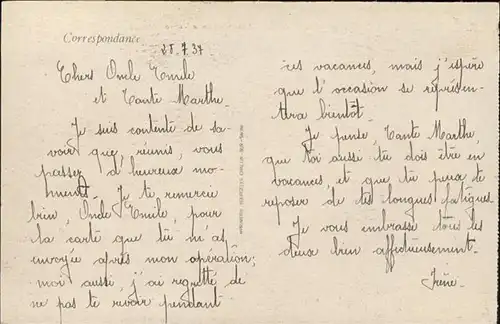 Correspondance
28.7.37
Chers Oncle Emile
et Tante Marthe.
Je suis contente de sa-
voir que, réunis, vous
passez d'heureux mo-
ments. Je te remercie
bien, Oncle Emile, pour
la carte que tu m'as
envoyée après mon opération;
moi aussi, j'ai regretté de
ne pas te revoir pendant
ces vacances, mais j'espère
que l'occasion se représen-
tera bientôt.
Je pense, Tante Marthe,
que toi aussi tu dois être en
vacances, et que tu peux te
reposer de tes longues fatigues.
Je vous embrasse tous les
deux bien affectueusement.
Irène.